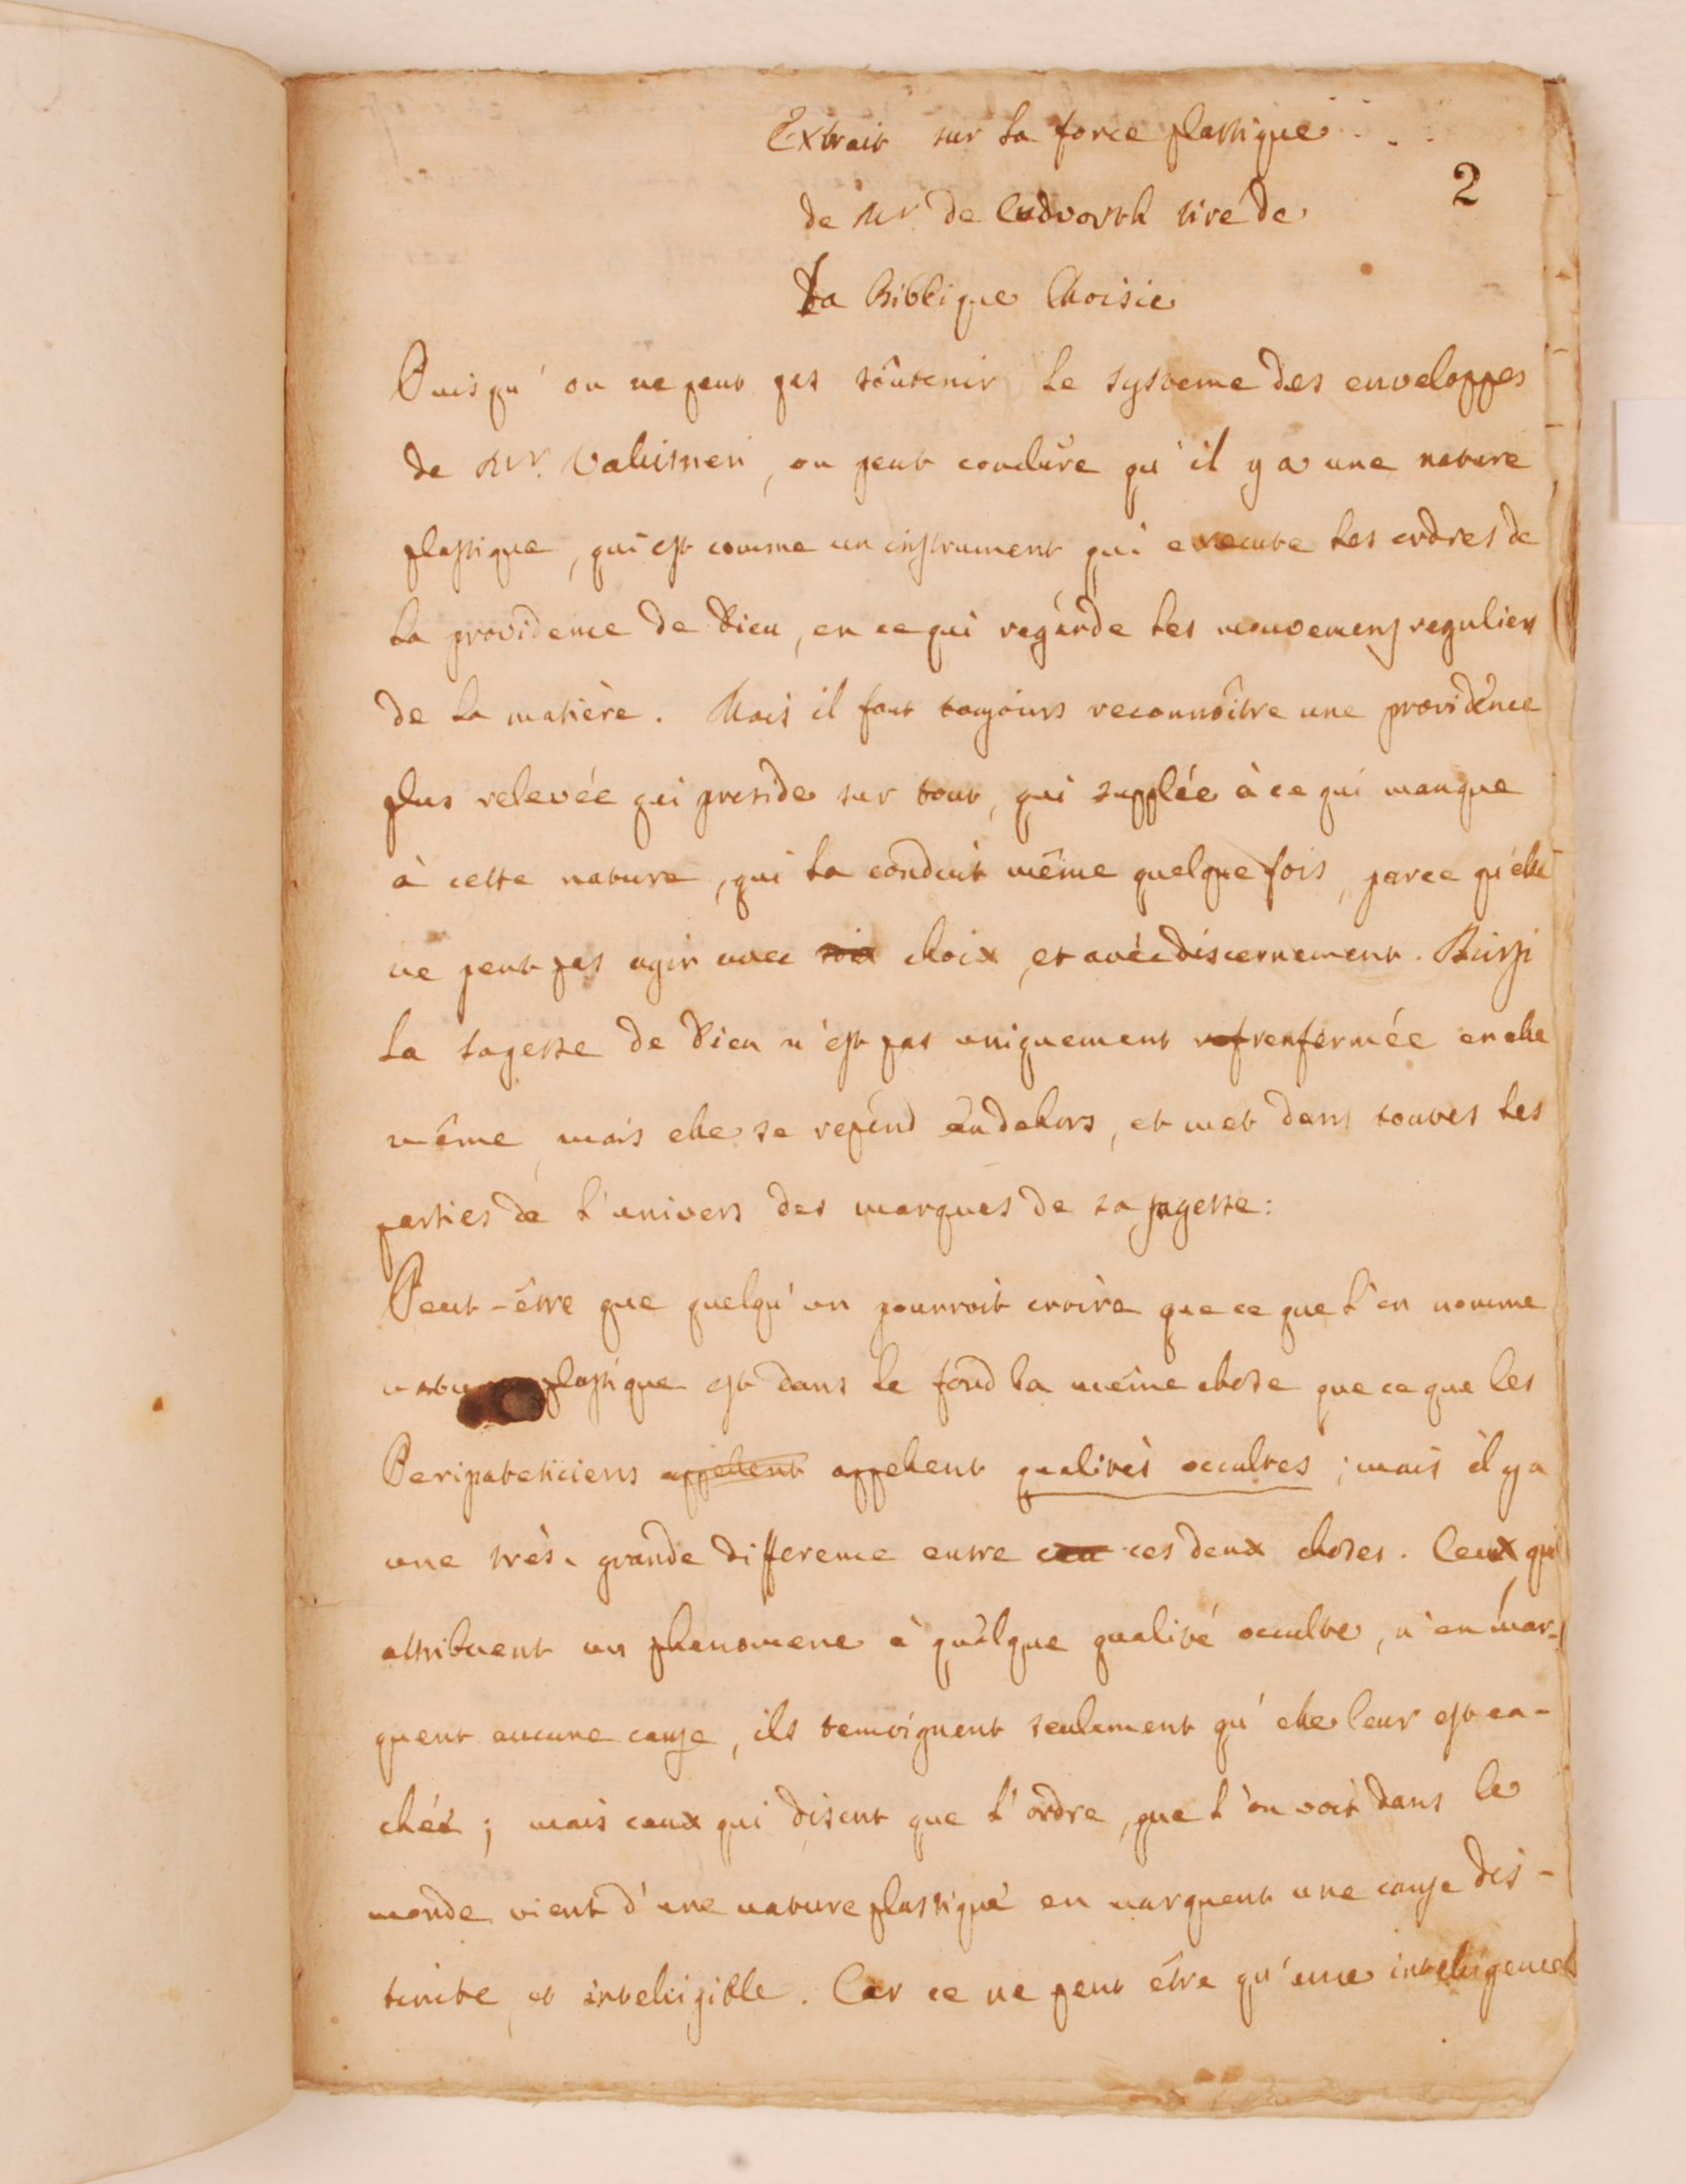 Extrait sur la force plastique
2
de Mr. de Cudvorth tiré de
la Biblique Choisie
Puisqu'on ne peut pas soûtenir le systeme des enveloppes
de Mr. Valisneri, on peut conclure qu'il y a une nature
plastique, qui est comme un instrument qui execute les ordres de
la providence de Dieu, en ce qui regarde les mouvemens reguliers
de la matière. Mais il faut toujours reconnoître une providence
plus relevée qui preside sur tout, qui supplée à ce qui manque
à cette nature, qui la conduit même quelque fois, parce qu'elle
ne peut pas agir avec choix, et avec discernement. Ainsi
la sagesse de Dieu n'est pas uniquement ref renfermée en elle
même, mais elle se repend audehors, et met dans toutes les
parties de l'univers des marques de sa sagesse:
Peut-être que quelqu'un pourroit croire que ce que l'on nomme
nature plastique est dans le fond la même chose que ce que les
Peripateticiens appellent appellent qualités occultes; mais il y a
une très-grande difference entre ces deux choses. Ceux qui
attribuent un phenomene à quelque qualité occulte, n'en mar-
quent aucune cause, ils temoignent seulement qu'elle leur est ca-
chée; mais ceux qui disent que l'ordre, que l'on voit dans le
monde vient d'une nature plastique en marquent une cause dis-
tincte, et intelligible. Car ce ne peut être qu'une intelligence